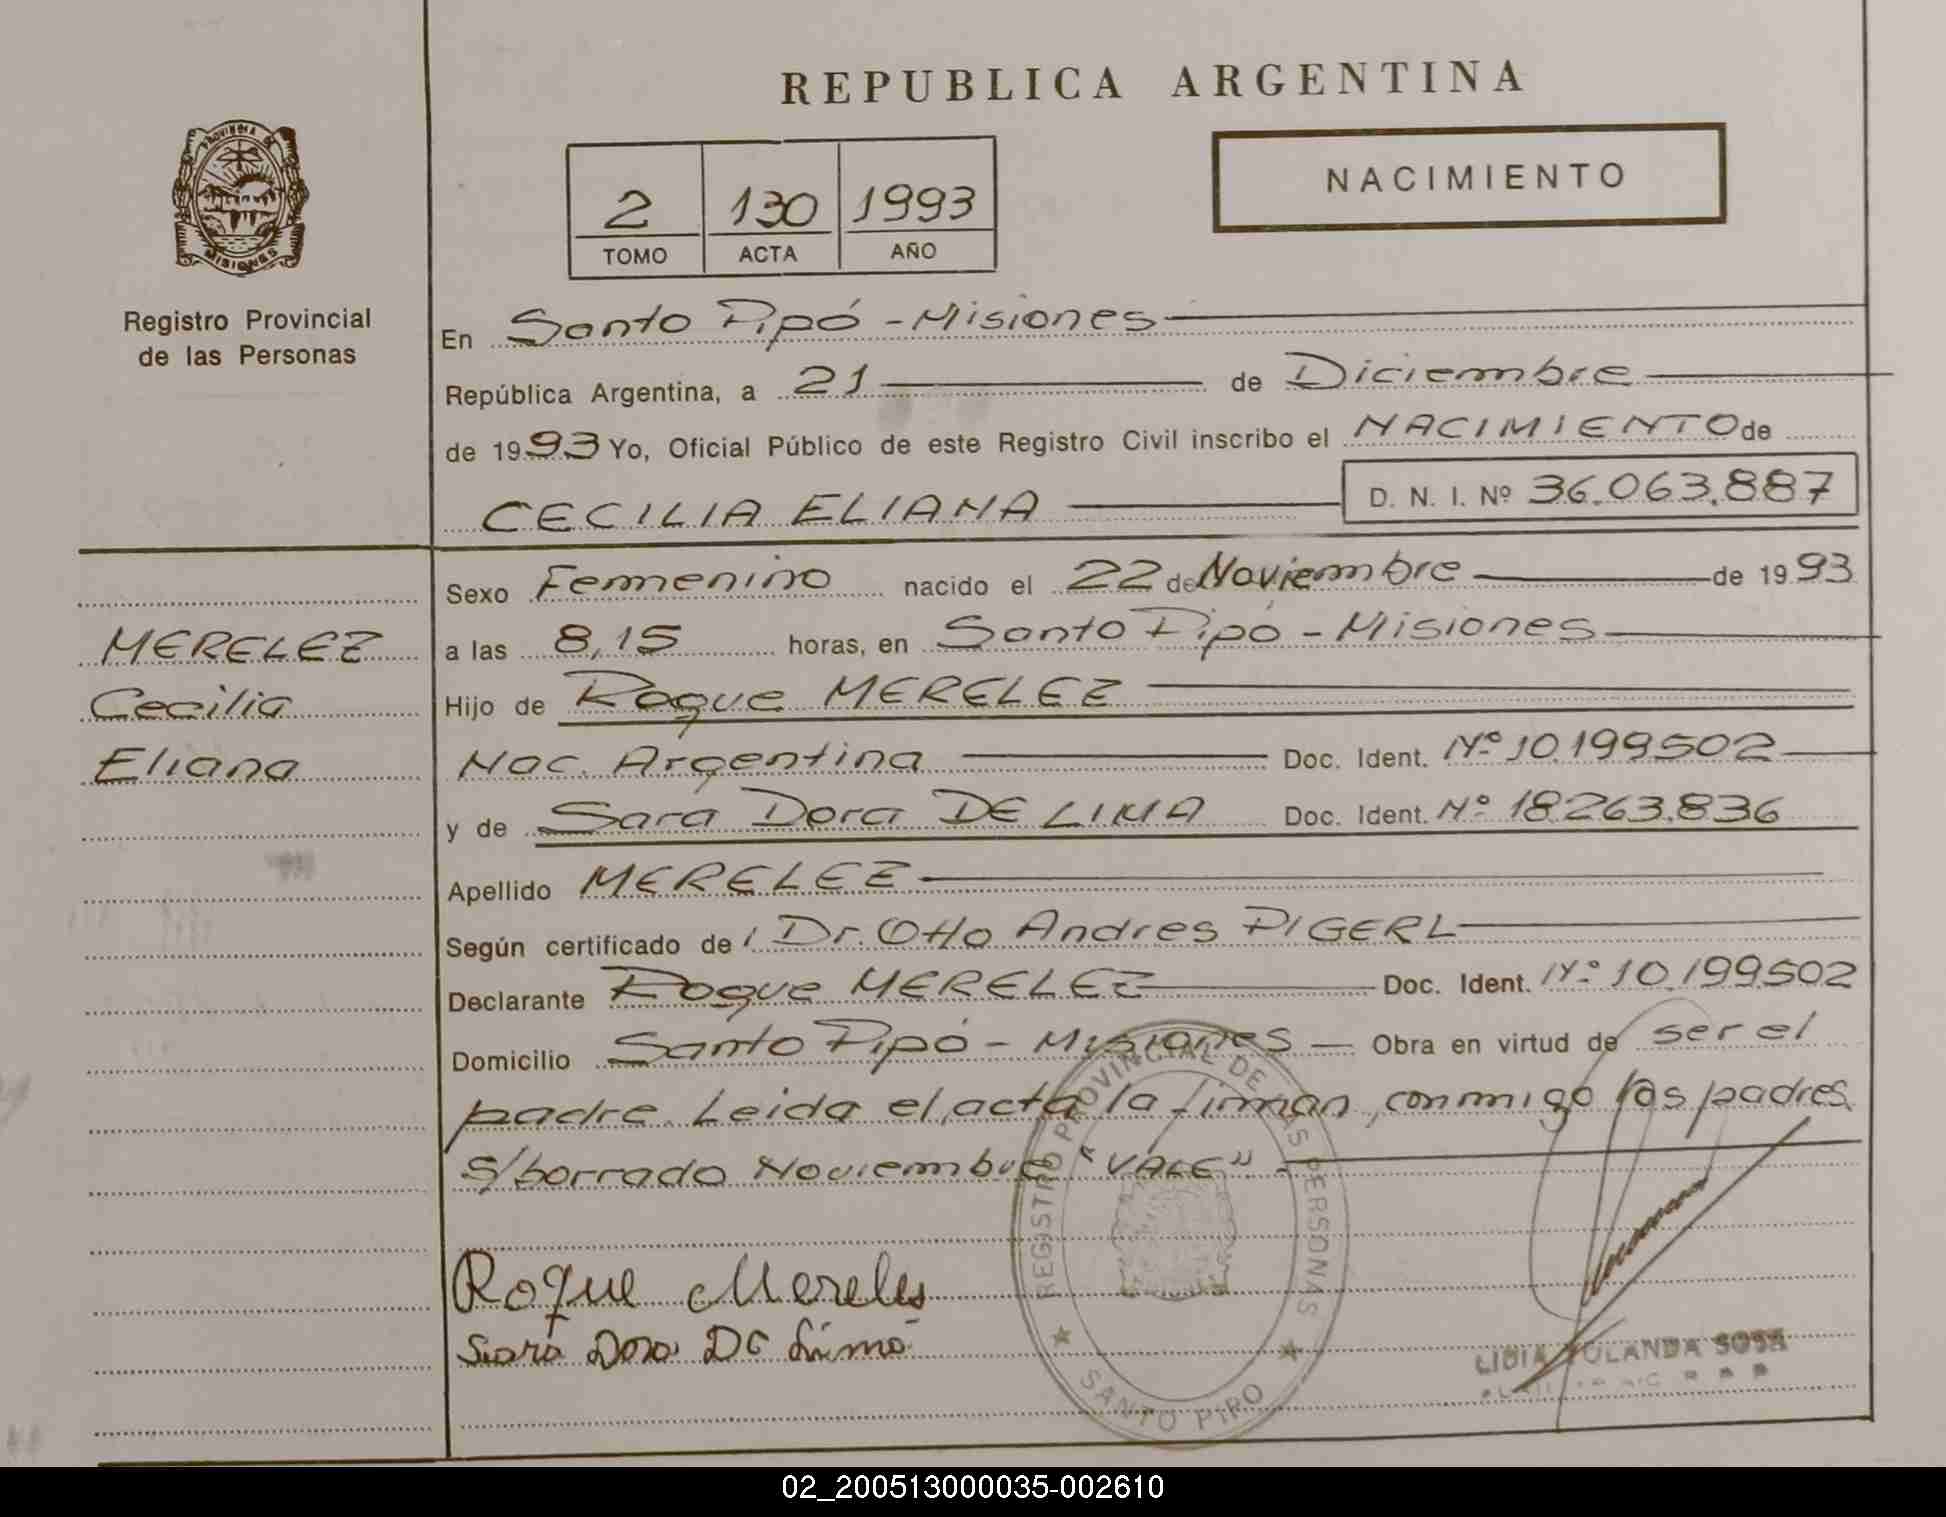 REPUBLICA ARGENTINA
PROVINCIA DE
MISIONES
Registro Provincial
de las Personas
2 130 1993
TOMO ACTA AÑO
NACIMIENTO
En Santo Pipó - Misiones
República Argentina, a 21 de Diciembre
de 1993 Yo, Oficial Público de este Registro Civil inscribo el NACIMIENTO de
CECILIA ELIANA D. N. I. Nº 36.063.887
MERELEZ
Cecilia
Eliana
Sexo Femenino nacido el 22 de Noviembre de 1993
a las 8,15 horas, en Santo Pipó - Misiones
Hijo de Roque MERELEZ
Nac. Argentina Doc. Ident. Nº 10.199.502
y de Sara Dora DE LIMA Doc. Ident. Nº 18.263.836
Apellido MERELEZ
Según certificado de Dr. Otto Andres PIGERL
Declarante Roque MERELEZ Doc. Ident. Nº 10.199502
Domicilio Santo Pipó - Misiones Obra en virtud de ser el
padre. Leida el acta la firman conmigo los padres.
s/borrado Noviembre "VALE".
Roque Mereles
Sara Dora De Lima
REGISTRO PROVINCIAL DE LAS PERSONAS
SANTO PIPO
LIDIA YOLANDA SOSA
02_200513000035-002610